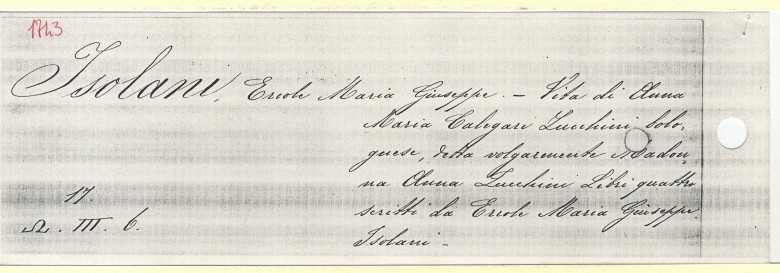 1743
Isolani, Ercole Maria Giuseppe. - Vita di Anna
Maria Calegari Zucchini, bolo-
gnese, detta volgarmente Madon-
na Anna Zucchini Libri quattro
scritti da Ercole Maria Giuseppe
Isolani -
17.
Ω. III. 6.